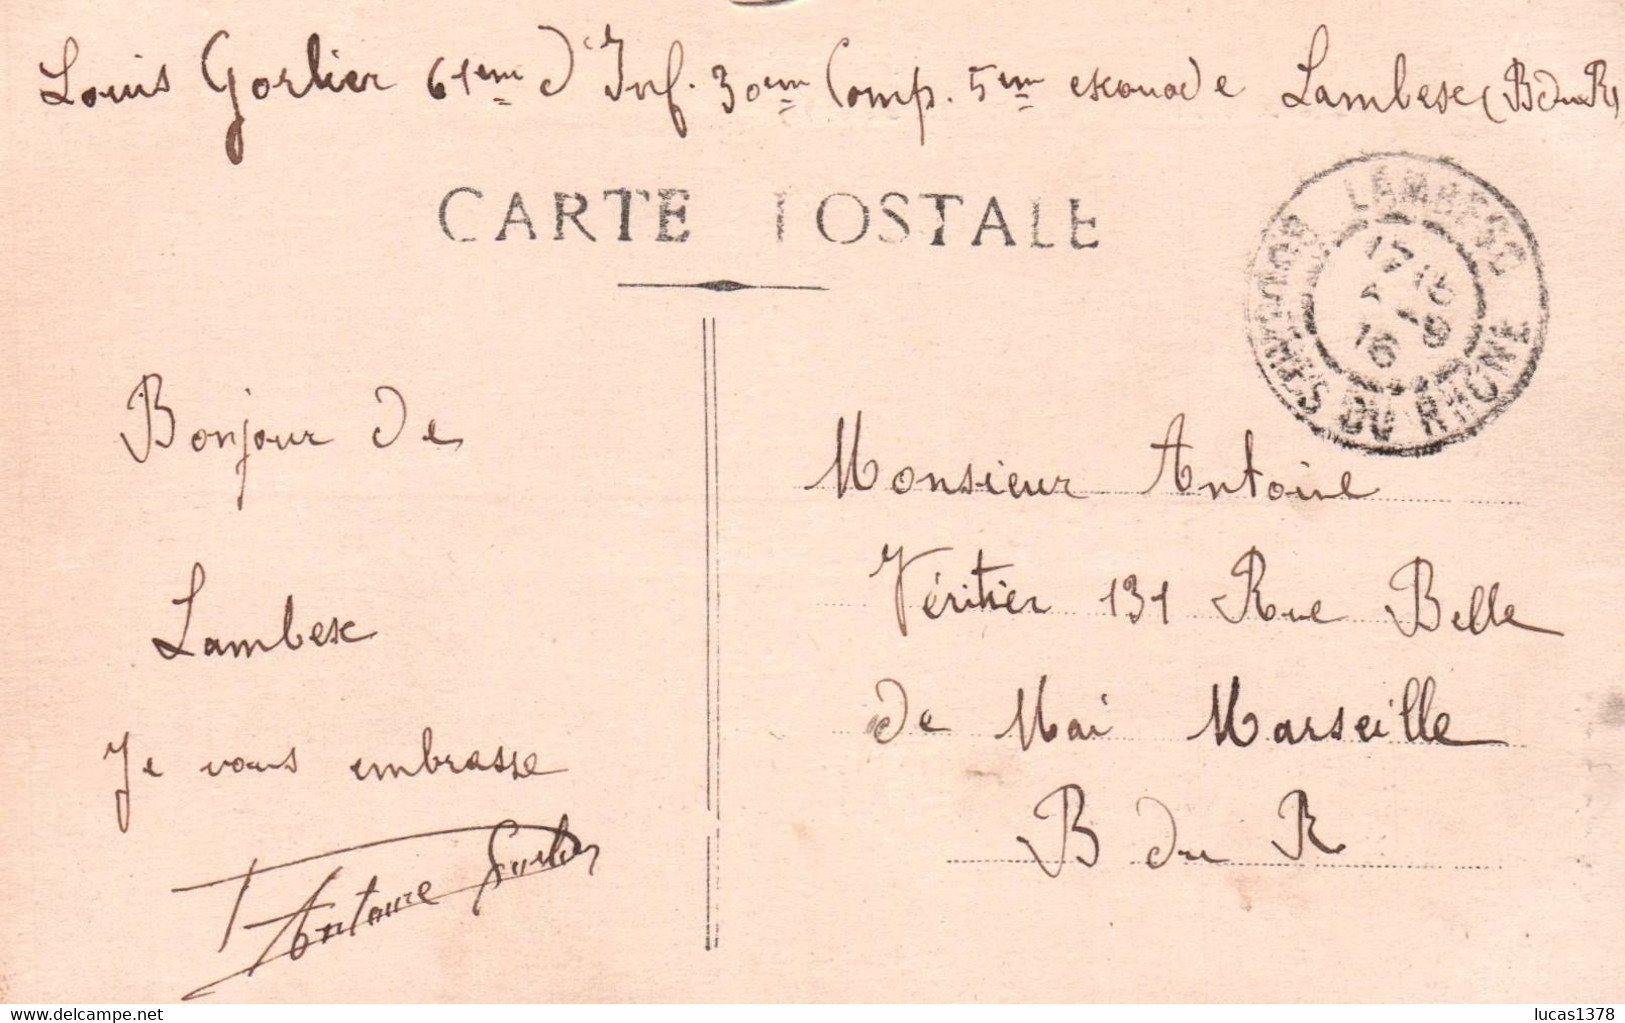 Louis Gorlier 61eme d'Inf. 30em Comp. 5em eskouade Lambesc (B du R)
CARTE POSTALE
LAMBESC
17 15
16
BOUCHES DU RHONE
Bonjour de
Lambesc
Je vous embrasse
Antoine Gorlier
Monsieur Antoine
Véritier 131 Rue Belle
de Mai Marseille
B du R
www.delcampe.net
lucas1378